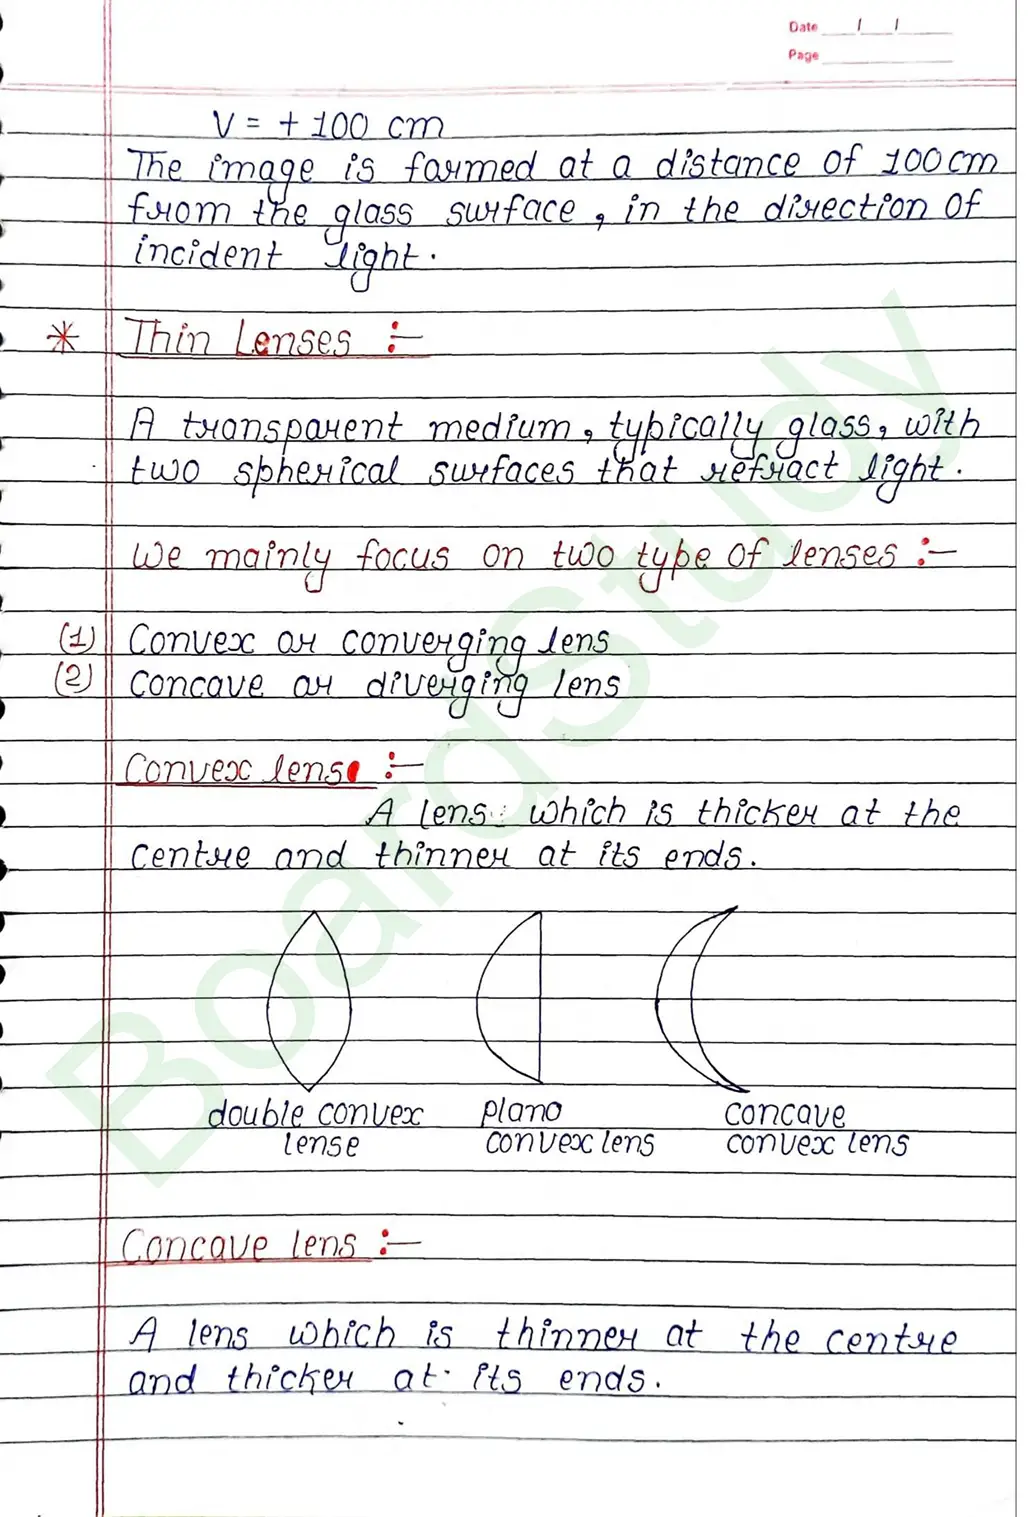 Date __/__/__
Page
V = + 100 cm
The image is formed at a distance of 100cm
from the glass surface, in the direction of
incident light.
* Thin Lenses :-
A transparent medium, typically glass, with
two spherical surfaces that refract light.
We mainly focus on two type of lenses :-
(1) Convex or converging lens
(2) Concave or diverging lens
Convex lens :-
A lens which is thicker at the
centre and thinner at its ends.
double convex
lense
plano
convex lens
concave
convex lens
Concave lens :-
A lens which is thinner at the centre
and thicker at its ends.
BoardStudy